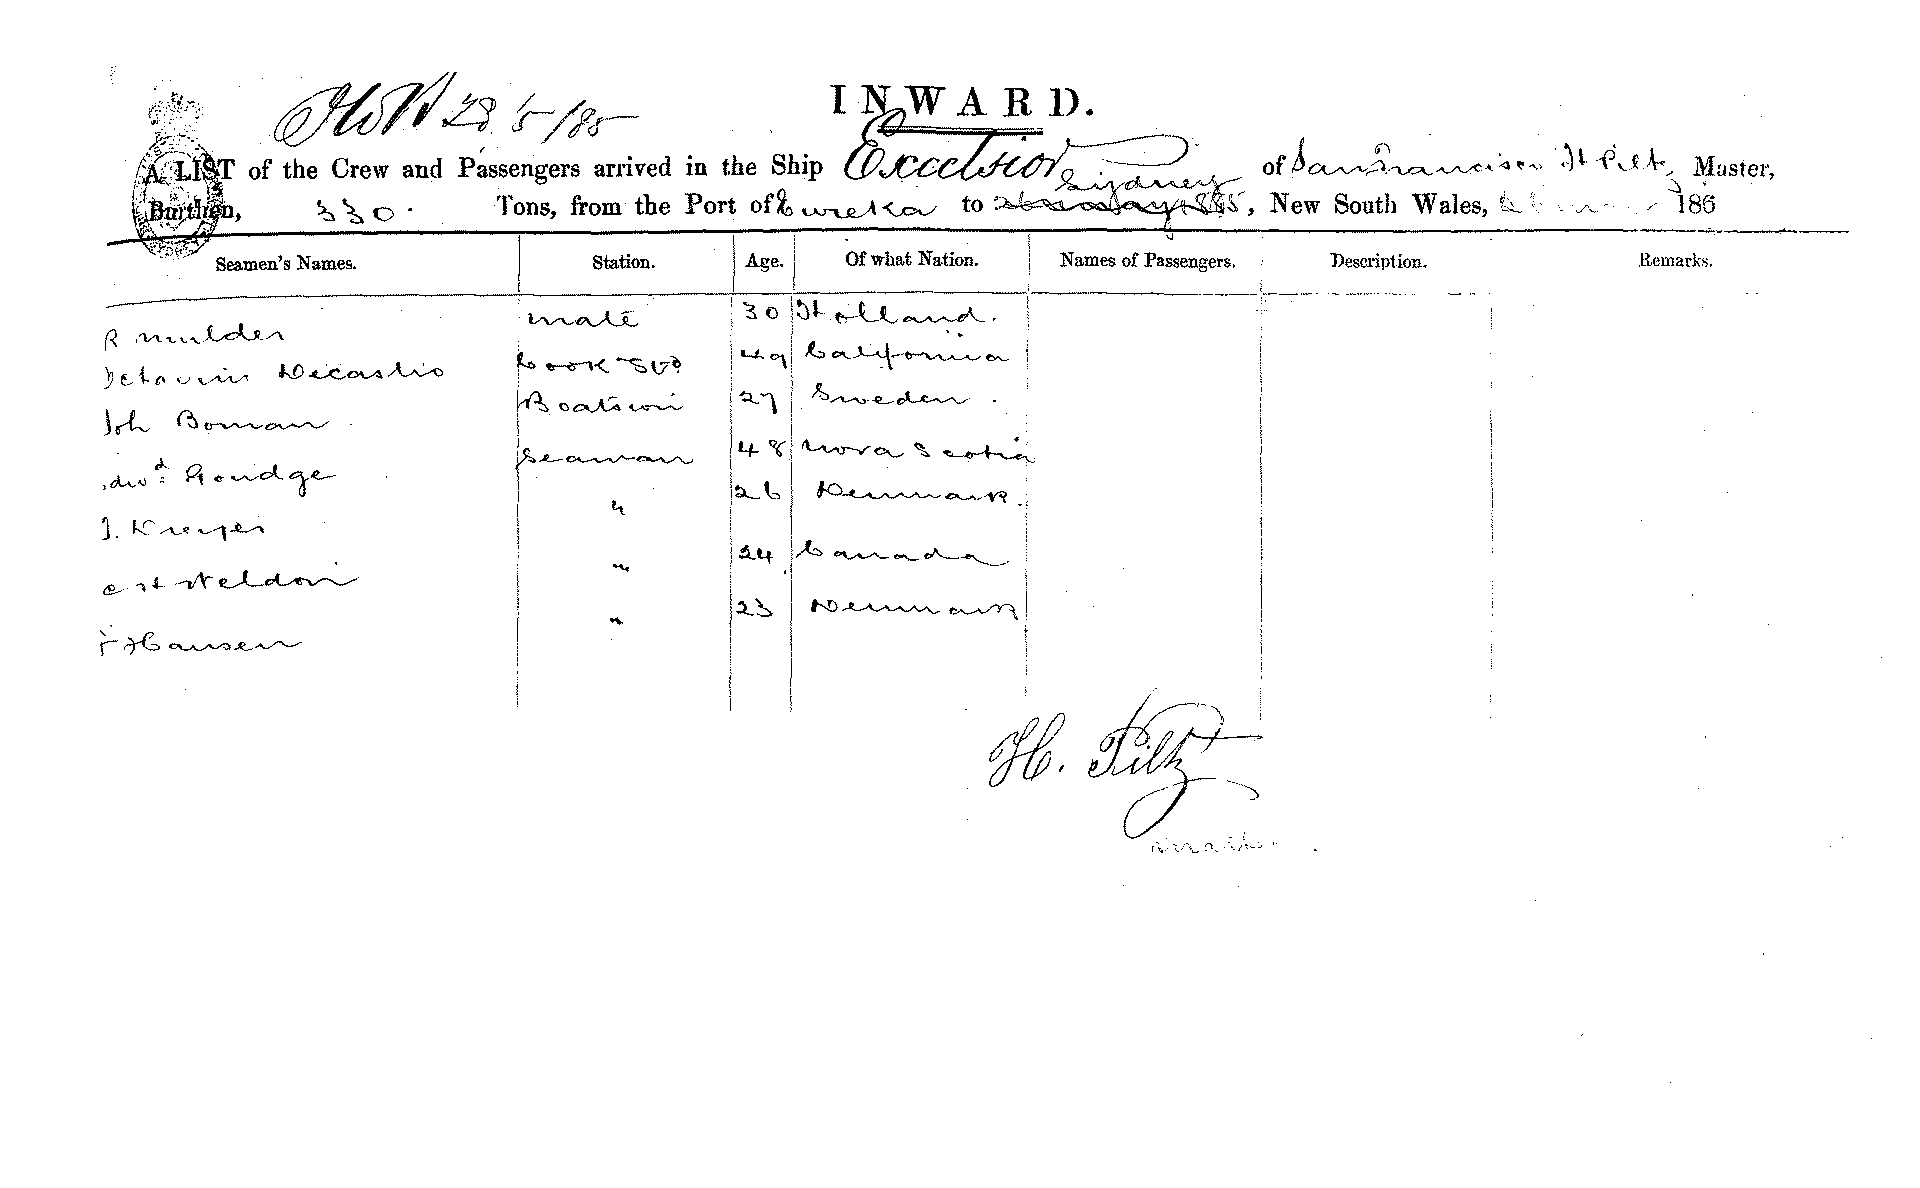 28/5/85
INWARD.
A LIST of the Crew and Passengers arrived in the Ship Excelsior of San Francisco H Piltz, Master,
Sydney
Burthen, 330. Tons, from the Port of Eureka to , New South Wales, 186
Seamen's Names. Station. Age. Of what Nation. Names of Passengers. Description. Remarks.
R Mulder mate 30 Holland.
Decastro Cook & Std 49 California
Joh Boman Boatswin 27 Sweden.
Goudge Seaman 48 Nova Scotia
J. Dreyer " 26 Denmark.
C H Weldon " 24 Canada
Hansen " 23 Denmark
H. Piltz
Master